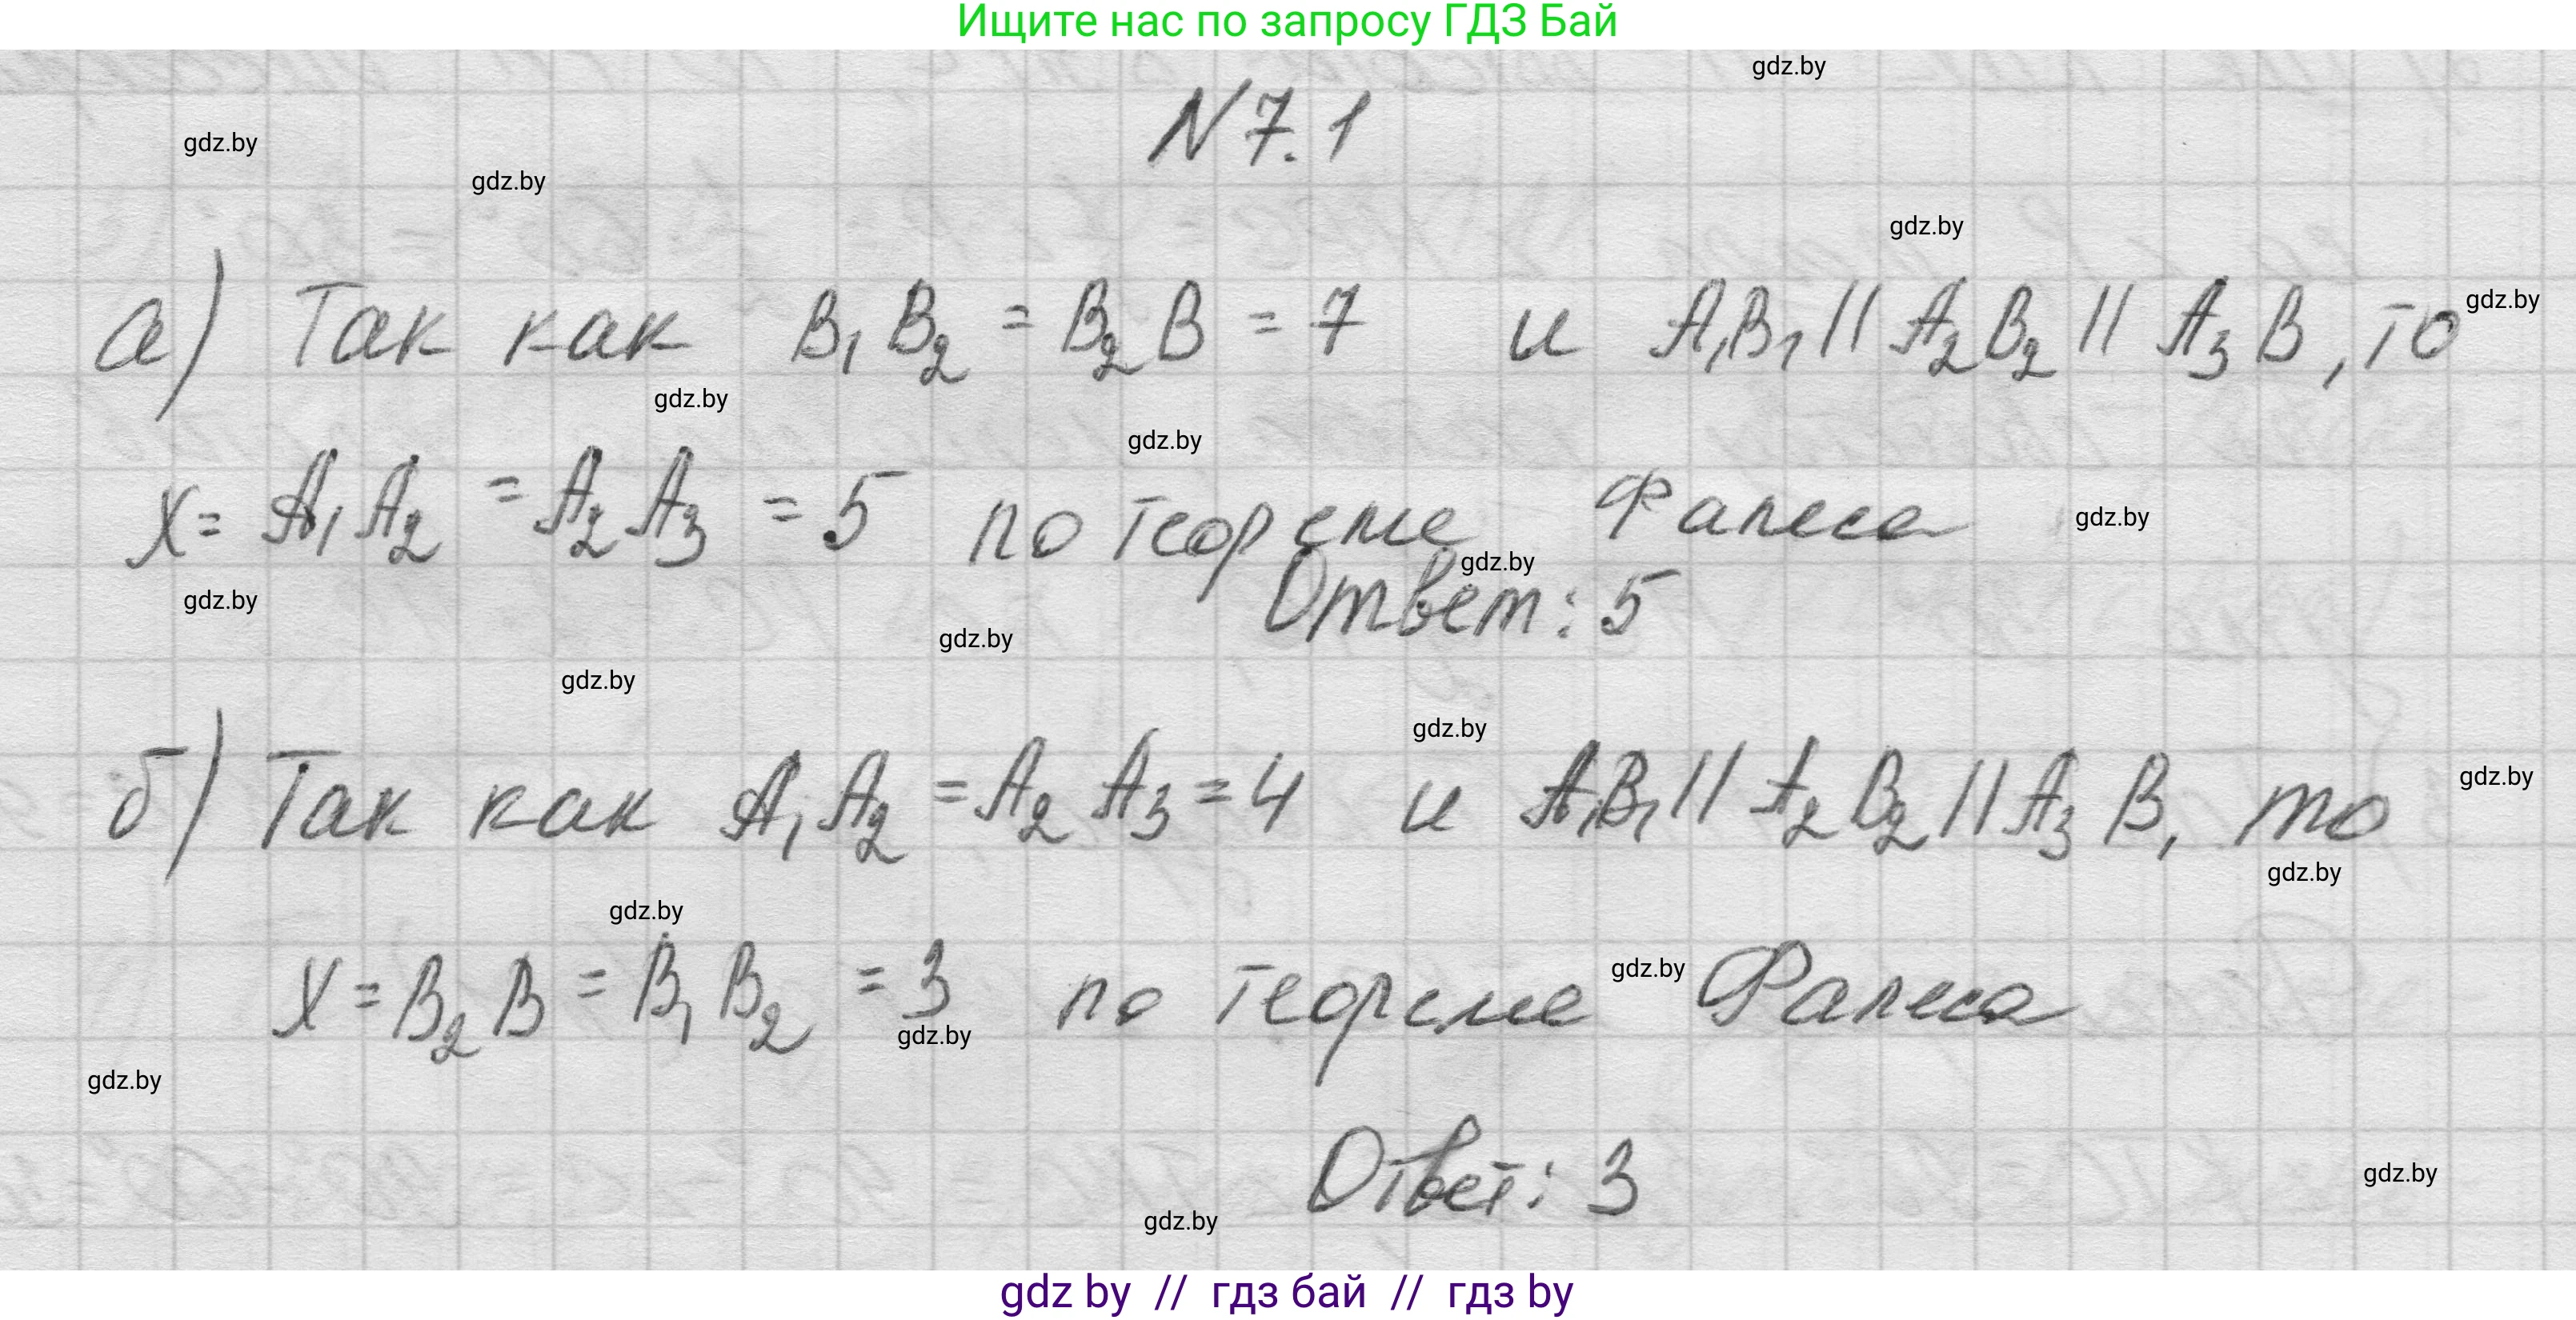 Ищите нас по запросу ГДЗ Бай
gdz.by
N 7.1
gdz.by
gdz.by
gdz.by
а) Так как B₁B₂ = B₂B = 7 и A₁B₁ // A₂B₂ // A₃B, то
gdz.by
gdz.by
gdz.by
x = A₁A₂ = A₂A₃ = 5 по теореме Фалеса
gdz.by
gdz.by
gdz.by
Ответ: 5
gdz.by
gdz.by
gdz.by
б) Так как A₁A₂ = A₂A₃ = 4 и A₁B₁ // A₂B₂ // A₃B, то
gdz.by
gdz.by
gdz.by
x = B₂B = B₁B₂ = 3 по теореме Фалеса
gdz.by
gdz.by
gdz.by
Ответ: 3
gdz.by
gdz.by
gdz by // гдз бай // гдз by